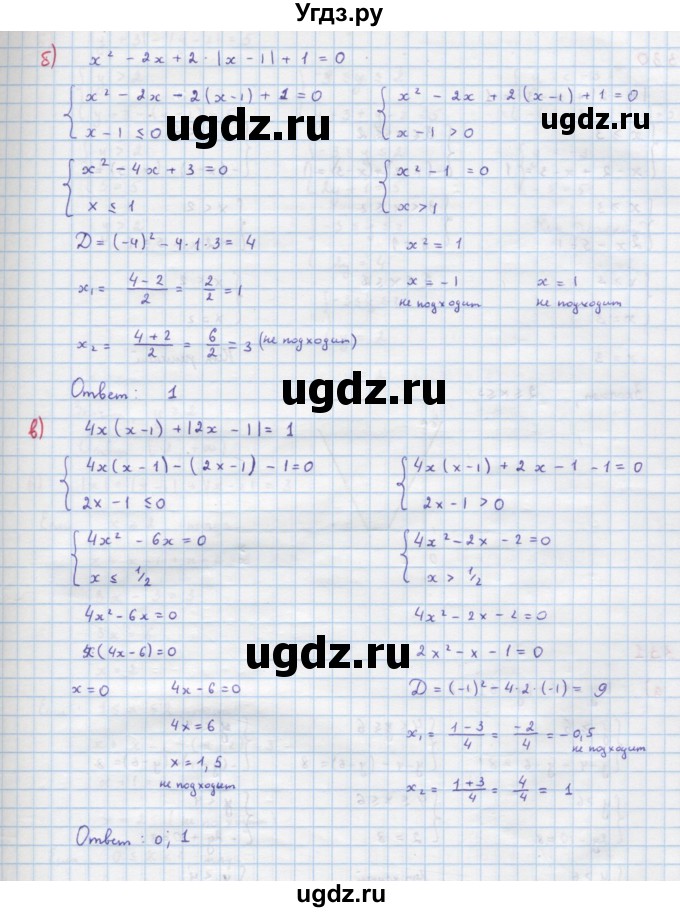 Угдз.ру
б) x² - 2x + 2 · |x - 1| + 1 = 0
{ x² - 2x - 2(x-1) + 1 = 0
x - 1 ≤ 0
{ x² - 2x + 2(x-1) + 1 = 0
x - 1 > 0
ugdz.ru
ugdz.ru
{ x² - 4x + 3 = 0
x ≤ 1
{ x² - 1 = 0
x > 1
D = (-4)² - 4·1·3 = 4
x² = 1
x₁ = (4-2)/2 = 2/2 = 1
x = -1
не подходит
x = 1
не подходит
x₂ = (4+2)/2 = 6/2 = 3 (не подходит)
Ответ: 1
ugdz.ru
в) 4x(x-1) + |2x - 1| = 1
{ 4x(x-1) - (2x-1) - 1 = 0
2x - 1 ≤ 0
{ 4x(x-1) + 2x - 1 - 1 = 0
2x - 1 > 0
{ 4x² - 6x = 0
x ≤ 1/2
{ 4x² - 2x - 2 = 0
x > 1/2
4x² - 6x = 0
4x² - 2x - 2 = 0
x(4x-6) = 0
2x² - x - 1 = 0
ugdz.ru
x = 0
4x - 6 = 0
D = (-1)² - 4·2·(-1) = 9
4x = 6
x₁ = (1-3)/4 = -2/4 = -0,5
не подходит
x = 1,5
не подходит
x₂ = (1+3)/4 = 4/4 = 1
ugdz.ru
Ответ: 0; 1
ugdz.ru